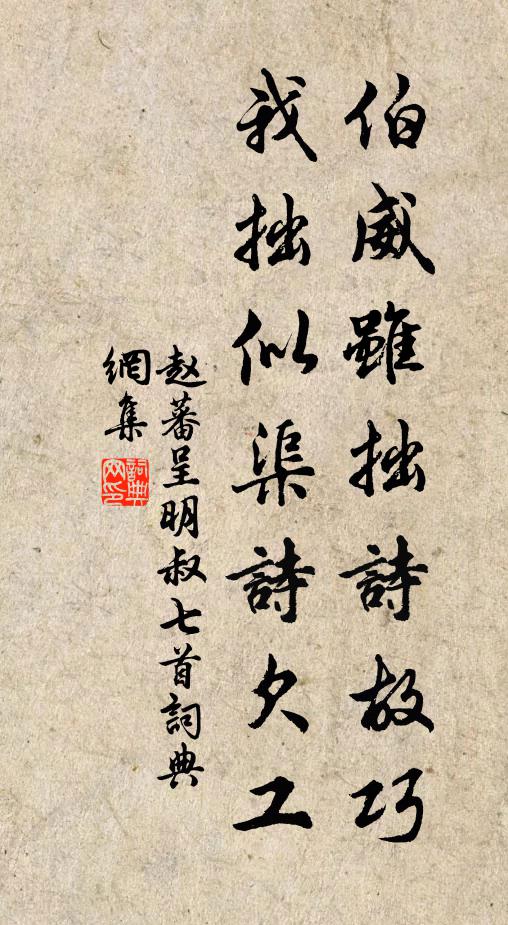 伯威雖拙詩故巧
我拙似渠詩欠工
赵蕃呈明叔七首詞典
網集
詞典
网印